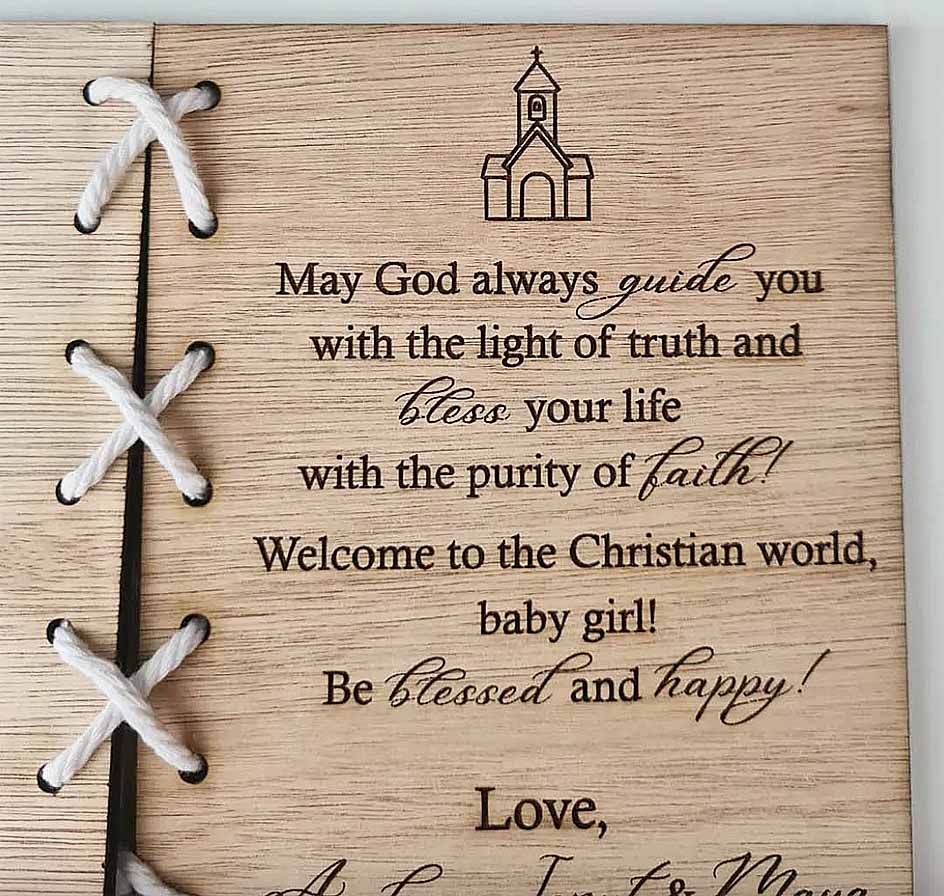 May God always guide you
with the light of truth and
bless your life
with the purity of faith!
Welcome to the Christian world,
baby girl!
Be blessed and happy!
Love,
&